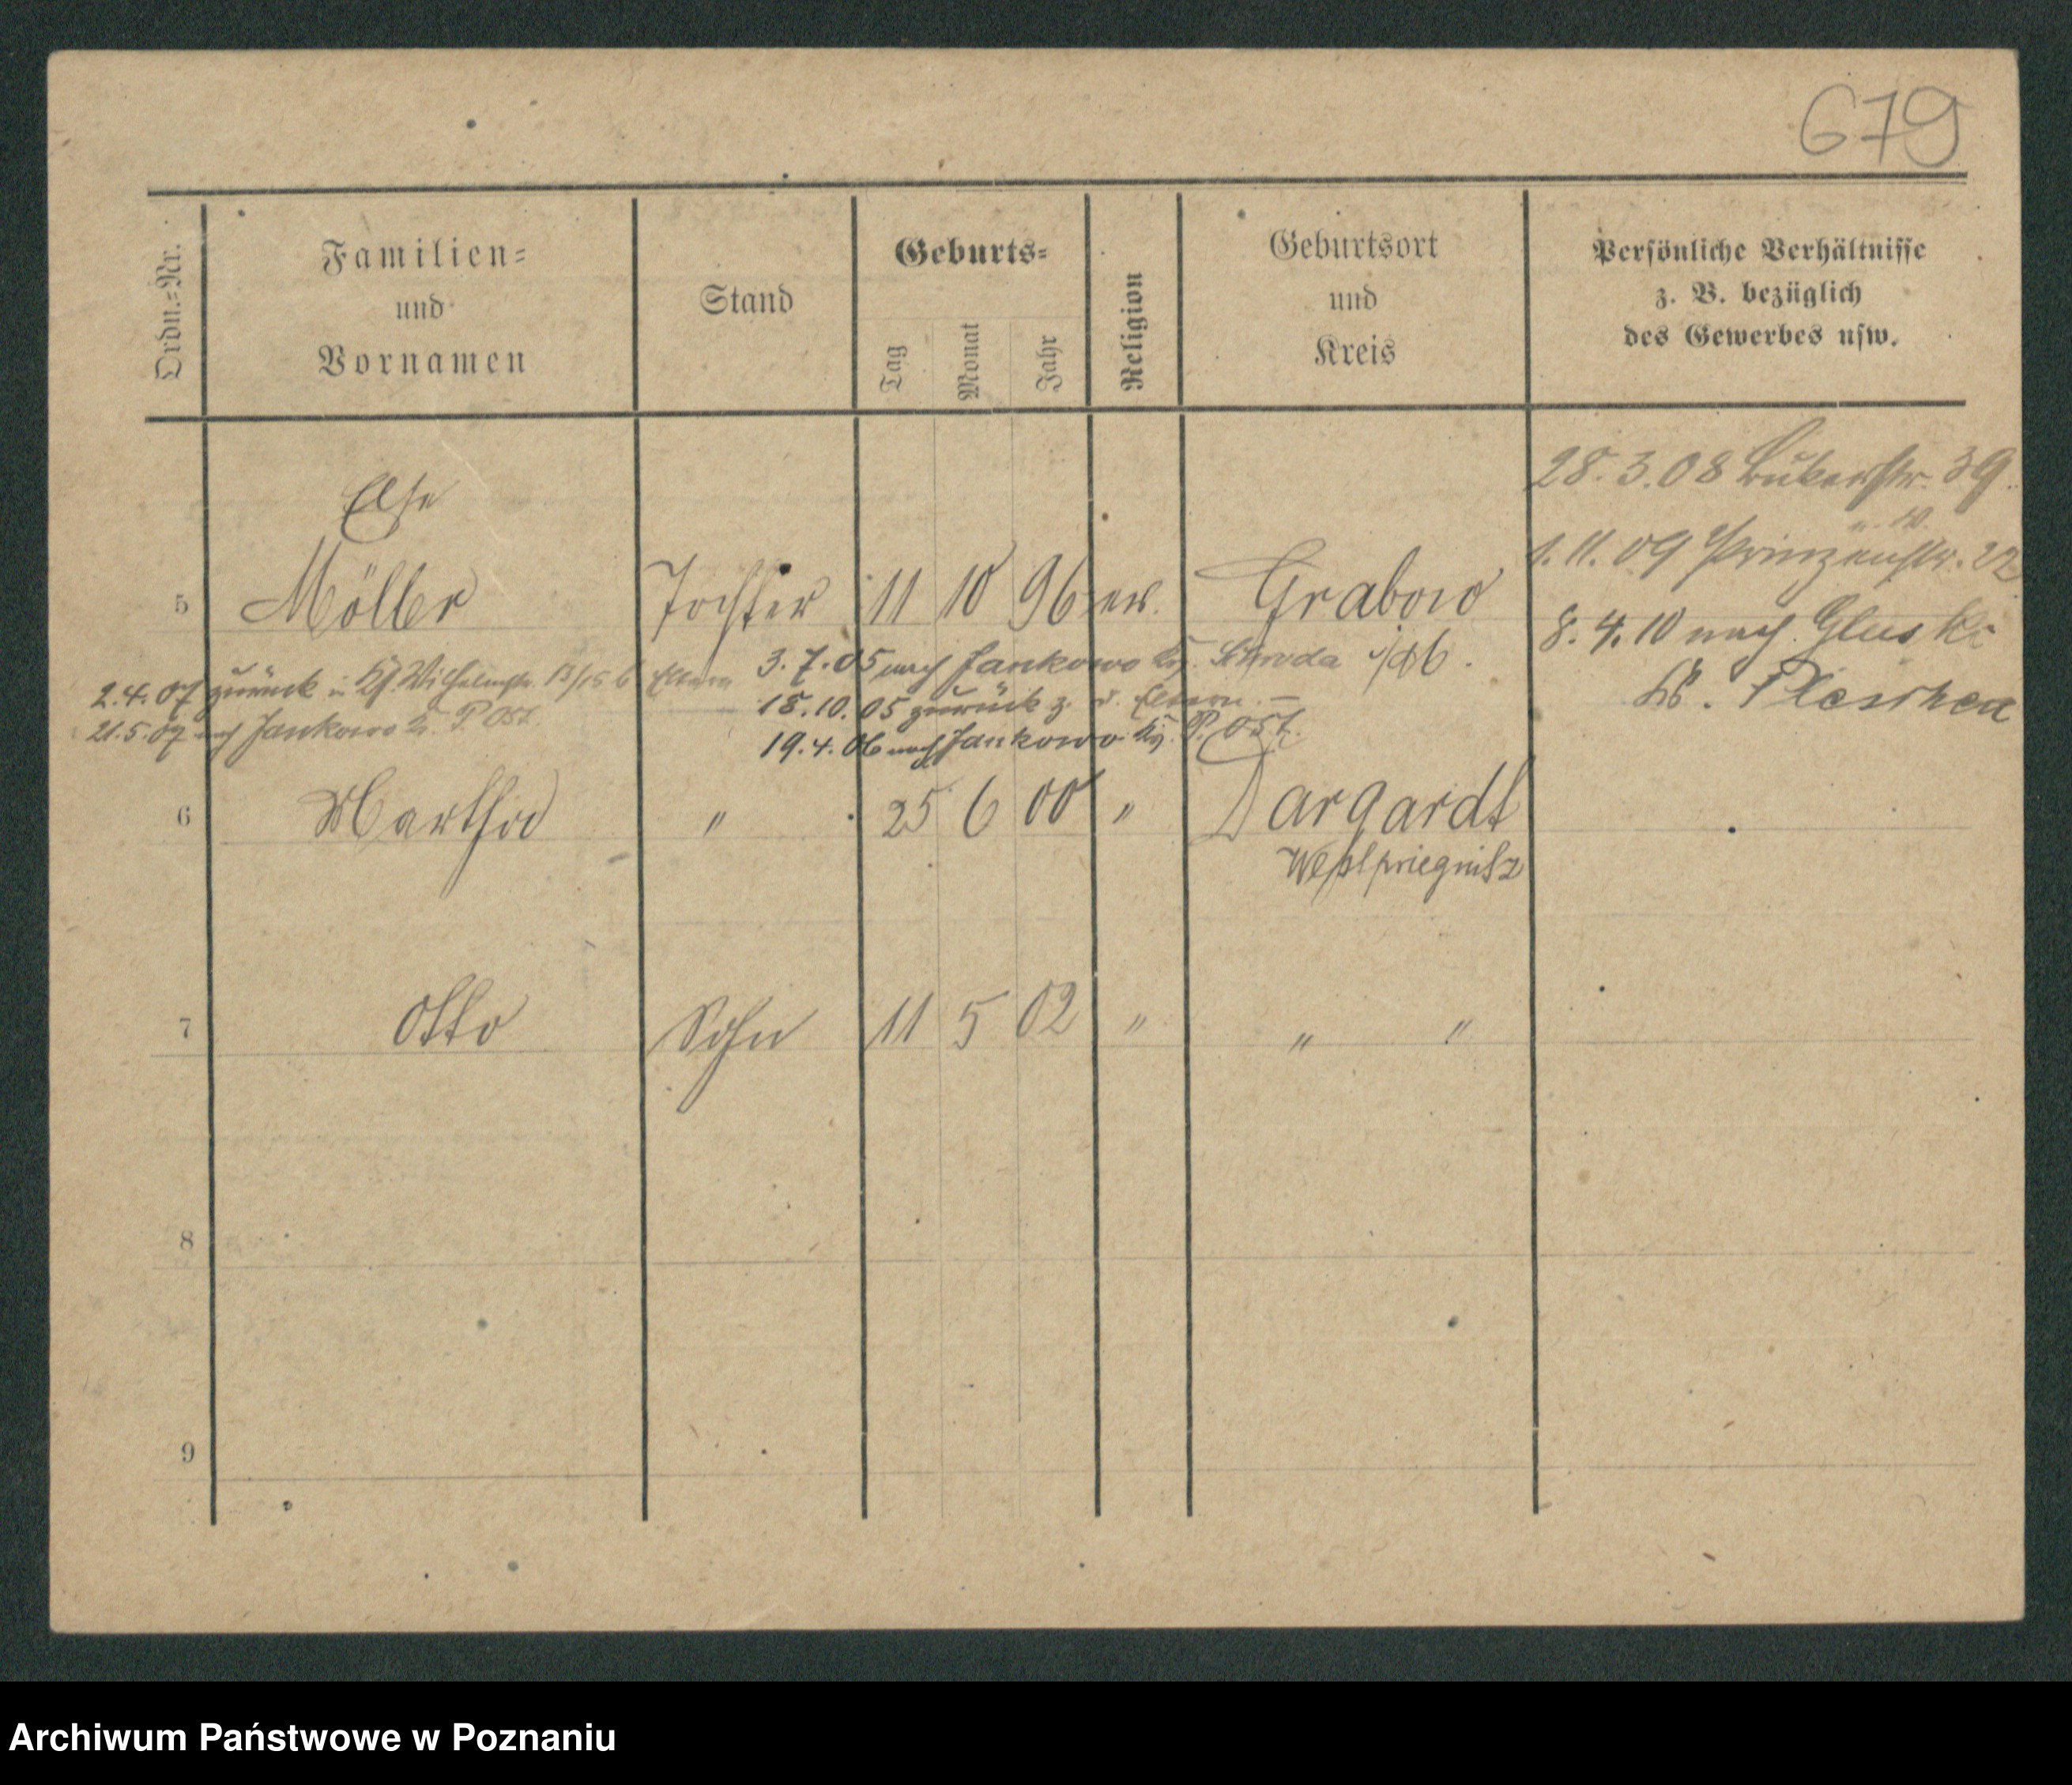 679
Ordn.=Nr.
Familien=
und
Vornamen
Stand
Geburts=
Tag
Monat
Jahr
Religion
Geburtsort
und
Kreis
Persönliche Verhältnisse
z. B. bezüglich
des Gewerbes usw.
28.3.08 39.
1.11.09 Prinzenstr. 22
8.4.10 nach Gluski
Kr. Pleschen
Else
5 Möller Tochter 11 10 96 ev. Grabow
3.7.05 nach Jankowo Kr. Schroda
2.4.07 zurück in Wilhelmstr. 13/15 b Eltern
18.10.05 zurück z. d. Eltern. –
21.5.07 nach Jankowo Kr. P. Ost.
19.4.06 nach Jankowo Kr. P. Ost.
6 Martha " 25 6 00 " Dargardt
Westpriegnitz
7 Otto Sohn 11 5 02 " " "
8
9
Archiwum Państwowe w Poznaniu